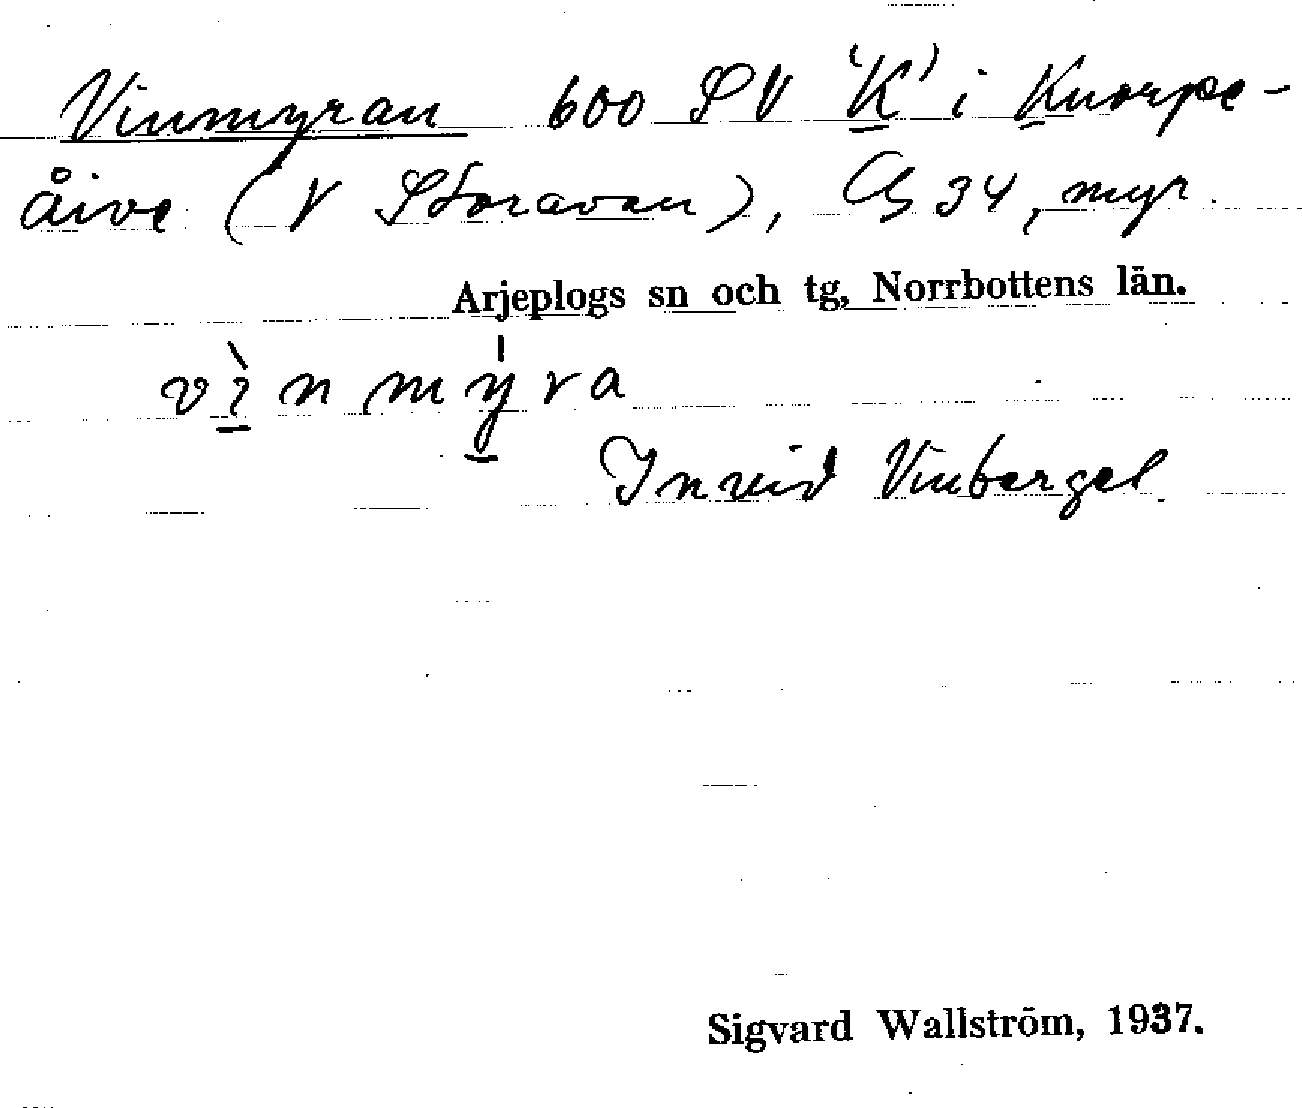 Vinmyran 600 SV 'K' i Knorpe-
åive (V Storavan), Gs 34, myr.
Arjeplogs sn och tg, Norrbottens län.
vìnmýra
Invid Vinbergel.
Sigvard Wallström, 1937.